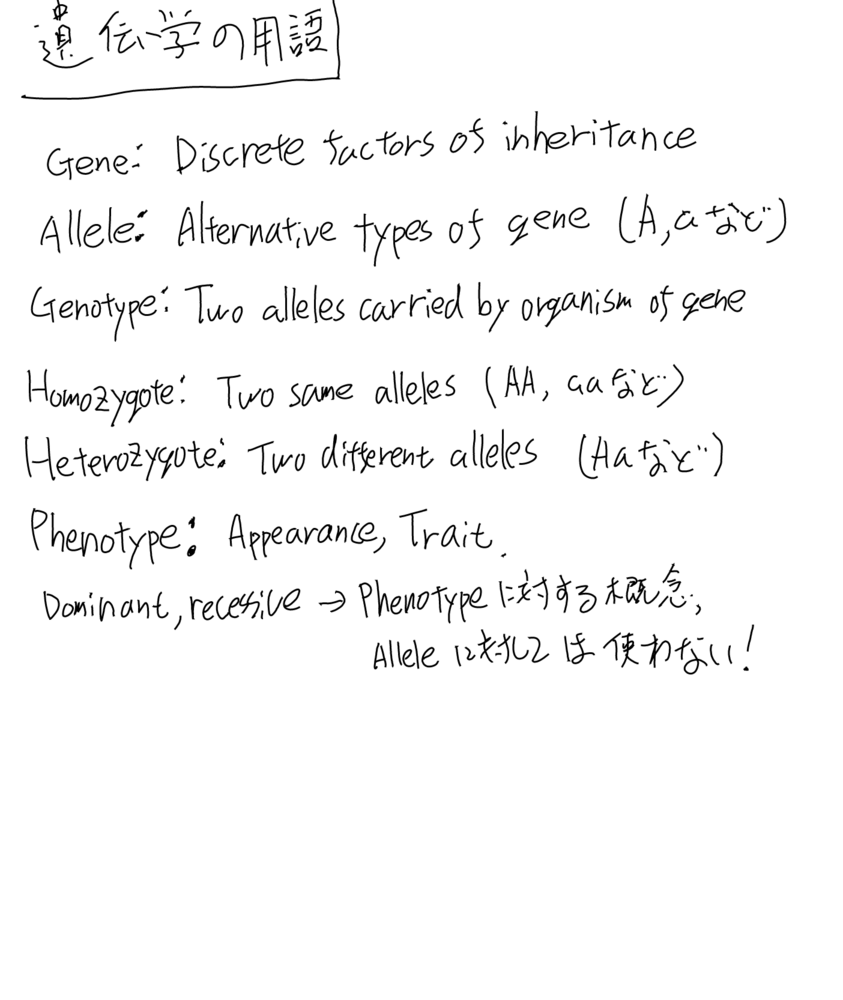 遺伝学の用語
Gene: Discrete factors of inheritance
Allele: Alternative types of gene (A,aなど)
Genotype: Two alleles carried by organism of gene
Homozygote: Two same alleles (AA, aaなど)
Heterozygote: Two different alleles (Aaなど)
Phenotype: Appearance, Trait.
Dominant, recessive → Phenotypeに対する概念,
Alleleに対しては使わない!